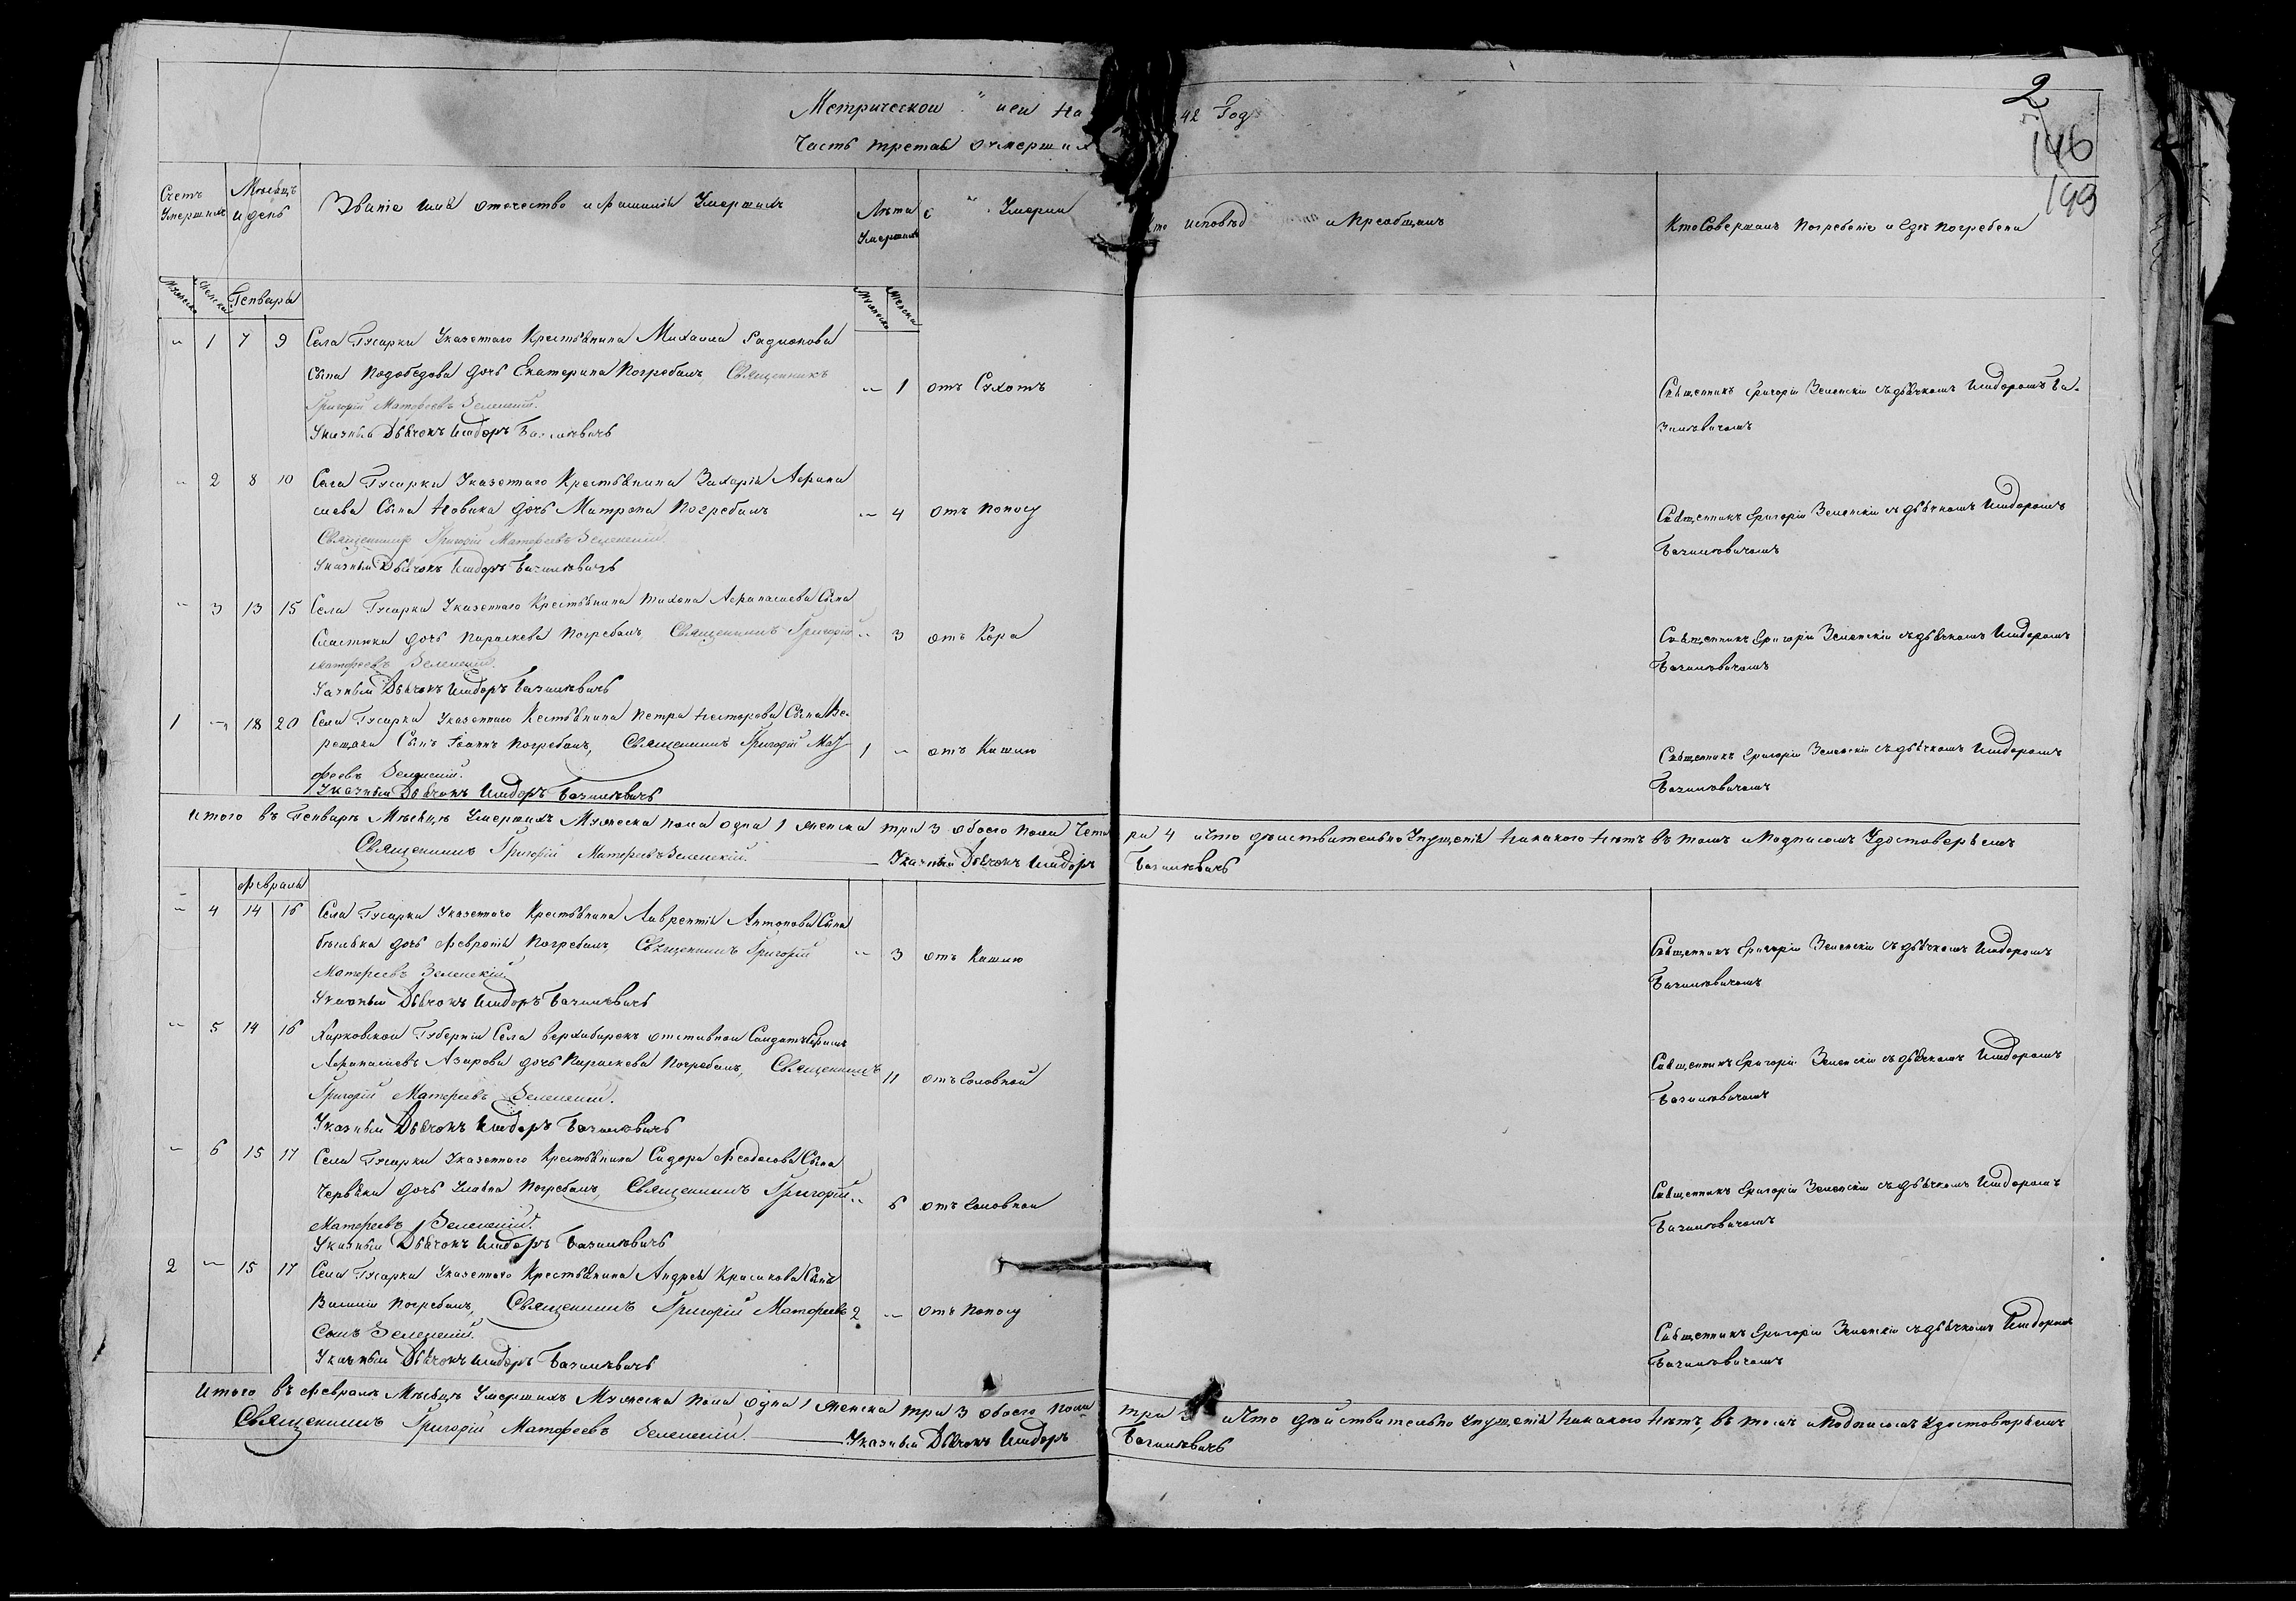 2
146
193
Метрической на 42 Год
Часть третая о умерших
Счетъ Умершихъ
Мѣсяцъ и день
Званіе имя отечество и Фамилія Умершихъ
Лѣта Умершихъ
Умерли
Кто исповѣд и Пріобщалъ
Кто Совершалъ Погребеніе и Гдѣ Погребени
Мужеска Женска Генваря
Мужеска Женска
1 7 9 Села Гусарки Указеннаго Крестьянина Михаила Радионова
Сына Подобедова дочь Екатерина Погребалъ Священникъ
Григорій Матфеевъ Зеленскій.
Указный Дьячокъ Исидоръ Базилѣвичъ
1 отъ Сухотъ
Священникъ Григорій Зеленскій съ дьячкомъ Исидоромъ Ба-
зилѣвичомъ
2 8 10 Села Гусарки Указенного Крестьянина Захарія Афана
сиева Сына Новика дочь Матрона Погребалъ
Священникъ Григорій Матфеевъ Зеленскій.
Указный Дьячокъ Исидоръ Базилѣвичъ
4 отъ Поносу
Священникъ Григорій Зеленскій съ дьячкомъ Исидоромъ
Базилѣвичомъ
3 13 15 Села Гусарки Указенного Крестьянина Тихона Афанасиева Сына
дочь Параскева Погребалъ, Священникъ Григорій
Матфеевъ Зеленскій.
Указный Дьячокъ Исидоръ Базилѣвичъ
3 отъ Кора
Священникъ Григорій Зеленскій съ дьячкомъ Исидоромъ
Базилѣвичомъ
1 18 20 Села Гусарки Указенного Кестьянина Петра Нестерова Сына Ве-
рещаки Сынъ Іоаннъ Погребалъ, Священникъ Григорій Мат
феевъ Зеленскій.
Указный Дьячокъ Исидоръ Базилѣвичъ
1 отъ Кашлю
Священникъ Григорій Зеленскій съ дьячкомъ Исидоромъ
Базилѣвичомъ
Итого въ Генварѣ Мѣсяцѣ Умершихъ Мужеска пола одна 1 женска три 3 обоего пола Четы ри 4 и Что дѣйствительно Упущенія Никакого Нѣтъ в томъ и Подписомъ Удостоверяемъ
Священникъ Григорій Матфеевъ Зеленскій. Указный Дьячокъ Исидоръ Базилѣвичъ
Февраля
4 14 16 Села Гусарки Указенного Крестьянина Лаврентія Антонова Сына
дочь Феврония Погребалъ, Священникъ Григорій
Матфеевъ Зеленскій
Указный Дьячокъ Исидоръ Базилѣвичъ
3 отъ Кашлю
Священникъ Григорій Зеленскій съ дьячкомъ Исидоромъ
Базилѣвичомъ
5 14 16 Харковской Губерніи Села отставной
Афанасиевъ Азарова дочь Параскева Погребалъ, Священникъ
Григорій Матфеевъ Зеленскій.
Указный Дьячокъ Исидоръ Базилѣвичъ
11 отъ Головной
Священникъ Григорій Зеленскій съ дьячкомъ Исидоромъ
Базилѣвичомъ
6 15 17 Села Гусарки Указенного Крестьянина Сидора Феодосова Сына
Червяки дочь Погребалъ, Священникъ Григорій
Матфеевъ Зеленскій.
Указный Дьячокъ Исидоръ Базилѣвичъ
6 отъ Головной
Священникъ Григорій Зеленскій съ дьячкомъ Исидоромъ
Базилѣвичомъ
2 15 17 Села Гусарки Указенного Крестьянина Андрея Красикова Сынъ
Василій Погребалъ, Священникъ Григорій Матфеевъ
Сынъ Зеленскій.
Указный Дьячокъ Исидоръ Базилѣвичъ
2 отъ Поносу
Священникъ Григорій Зеленскій съ дьячкомъ Исидоромъ
Базилѣвичомъ
Итого въ Февралѣ Мѣсяцѣ Умершихъ Мужеска пола одна 1 женска три 3 обоего пола три и Что дѣйствительно Упущенія Никакого Нѣтъ, в томъ и Подписомъ Удостовѣряемъ
Священникъ Григорій Матфеевъ Зеленскій. Указный Дьячокъ Исидоръ Базилѣвичъ